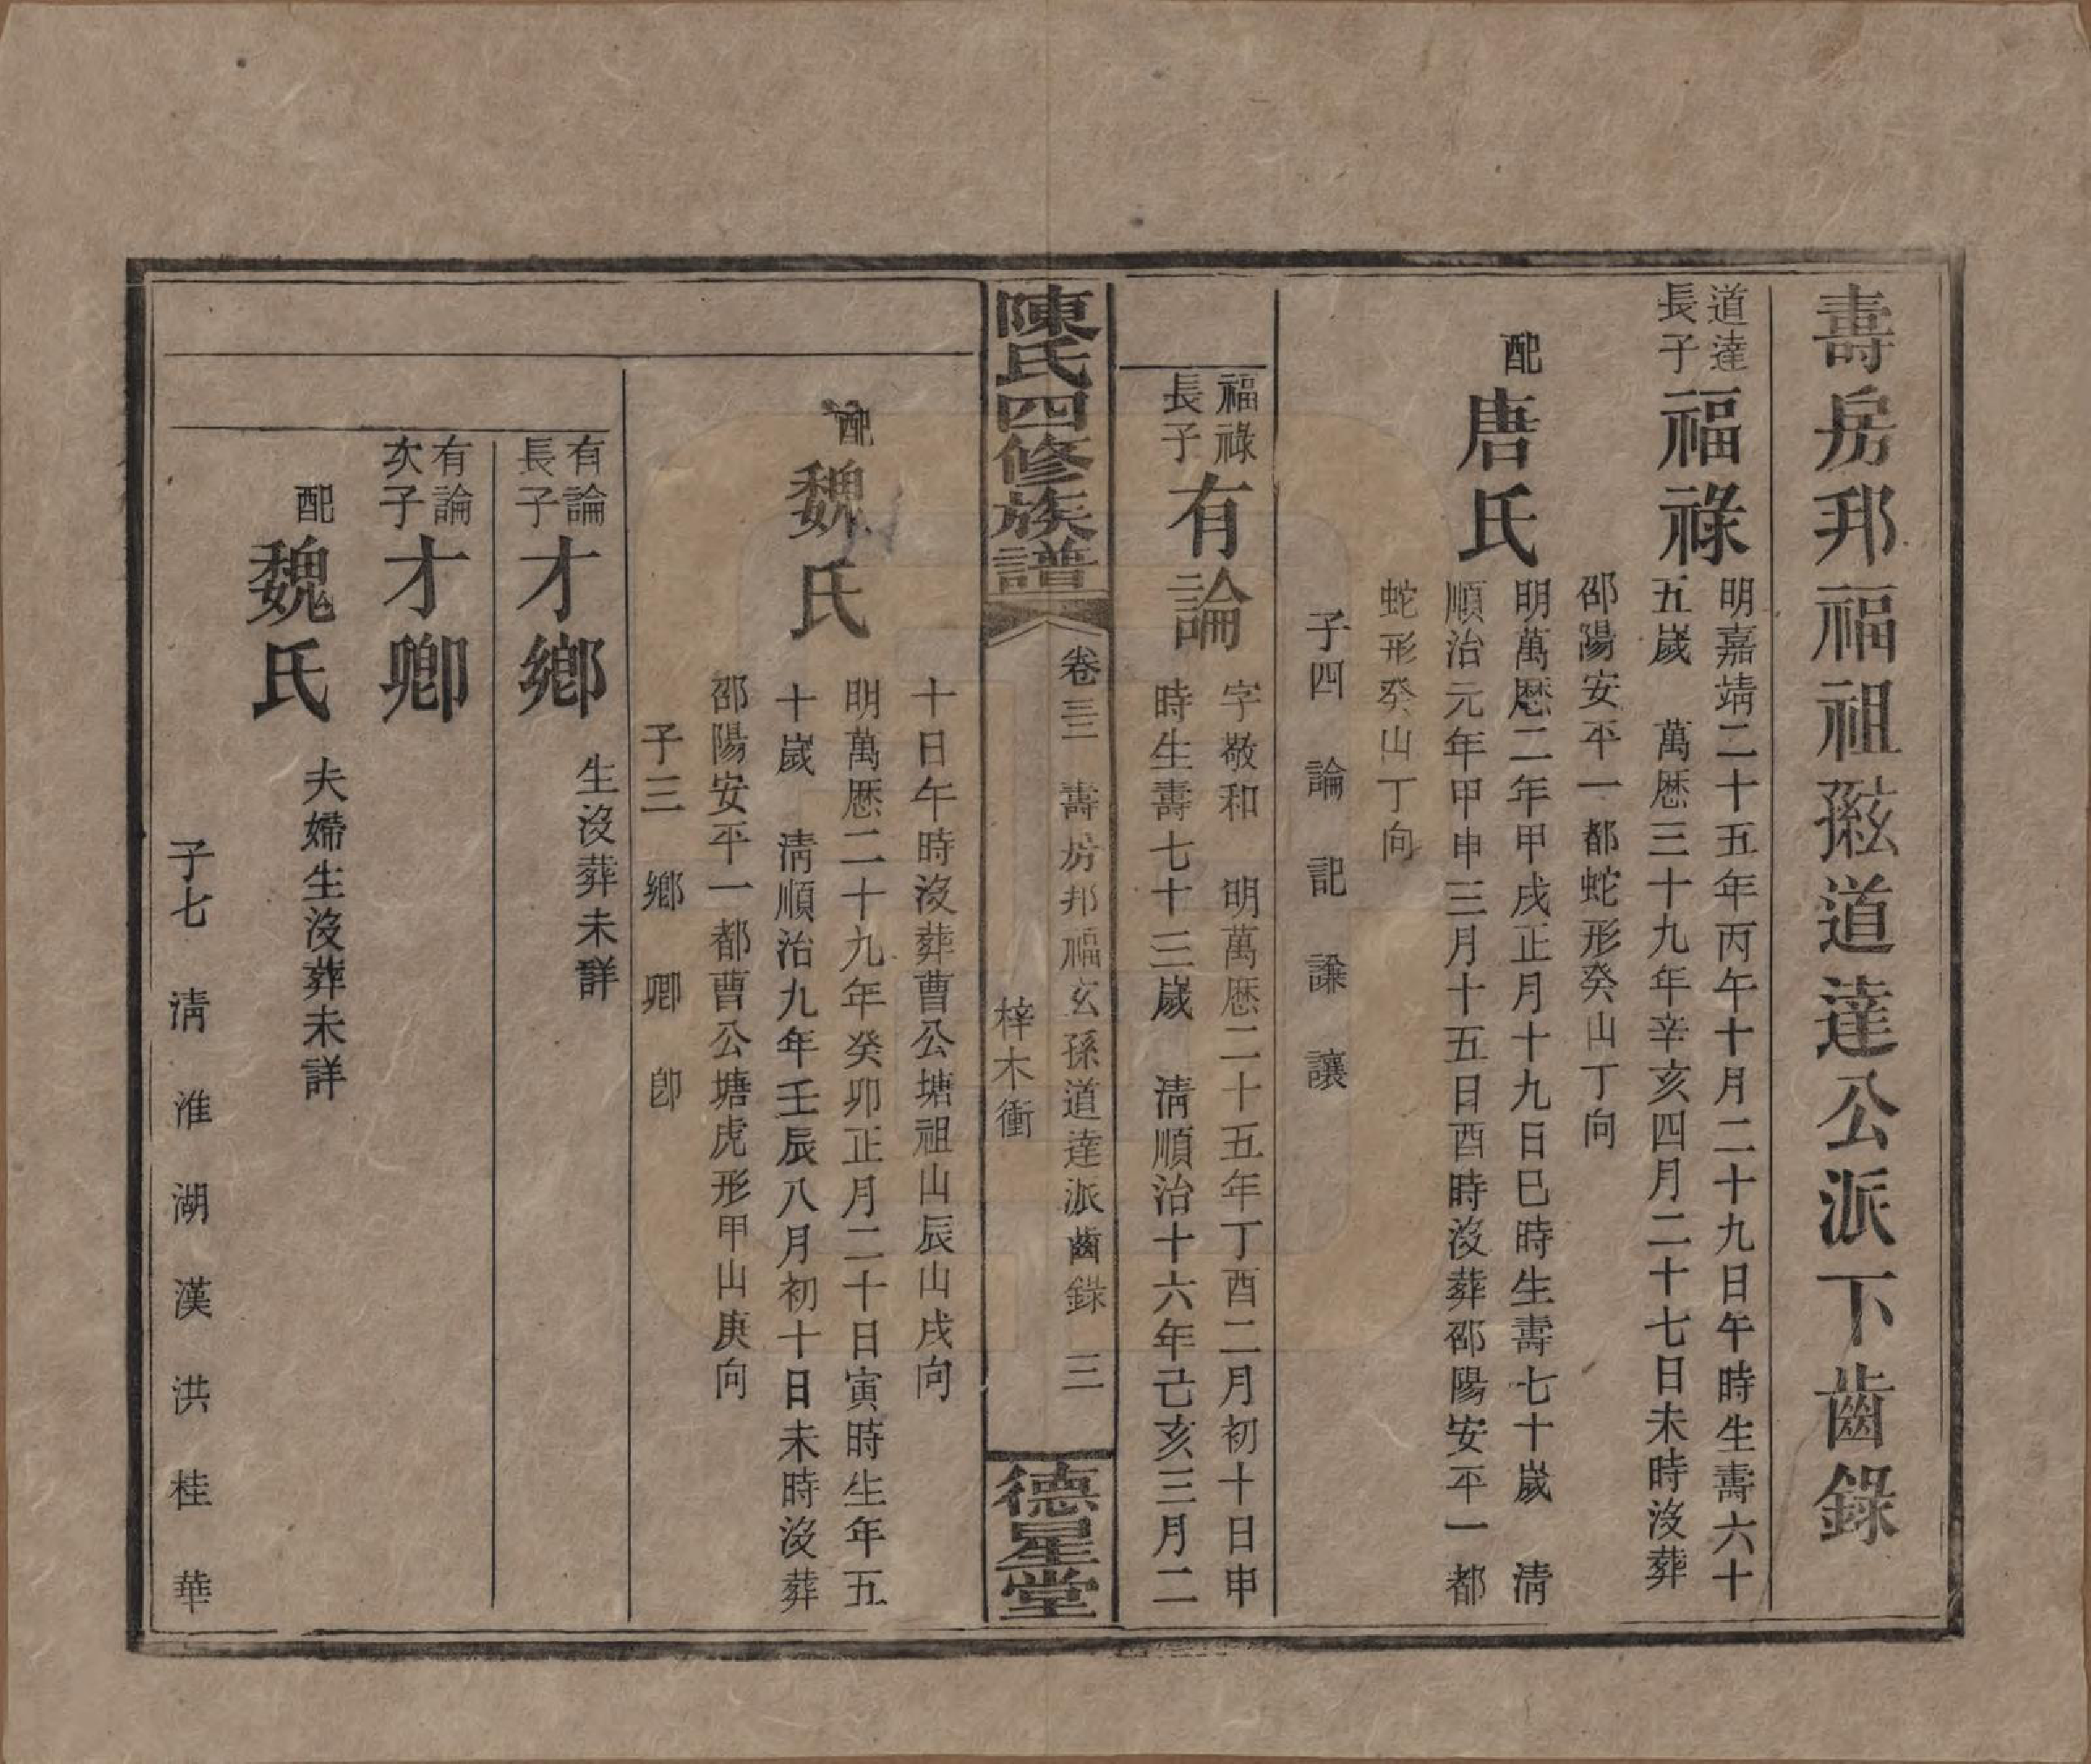 壽房邦福祖㺭道達公派下齒錄
道達
長子
福祿
明嘉靖二十五年丙午十月二十九日午時生壽六十
五歲　萬曆三十九年辛亥四月二十七日未時沒葬
邵陽安平一都蛇形癸山丁向
配
唐氏
明萬曆二年甲戌正月十九日巳時生壽七十歲　清
順治元年甲申三月十五日酉時沒葬邵陽安平一都
蛇形癸山丁向
子四　論　記　謙　讓
福祿
長子
有論
字敬和　明萬曆二十五年丁酉二月初十日申
時生壽七十三歲　清順治十六年己亥三月二
陳氏四修族譜
卷三　壽房邦福玄孫道達派齒錄　三
梓木衝
德星堂
十日午時沒葬曹公塘祖山辰山戌向
配
魏氏
明萬曆二十九年癸卯正月二十日寅時生年五
十歲　清順治九年壬辰八月初十日未時沒葬
邵陽安平一都曹公塘虎形甲山庚向
子三　鄉　卿　卽
有論
長子
才鄉
生沒葬未詳
有論
次子
才卿
配
魏氏
夫婦生沒葬未詳
子七　清　淮　湖　漢　洪　桂　華